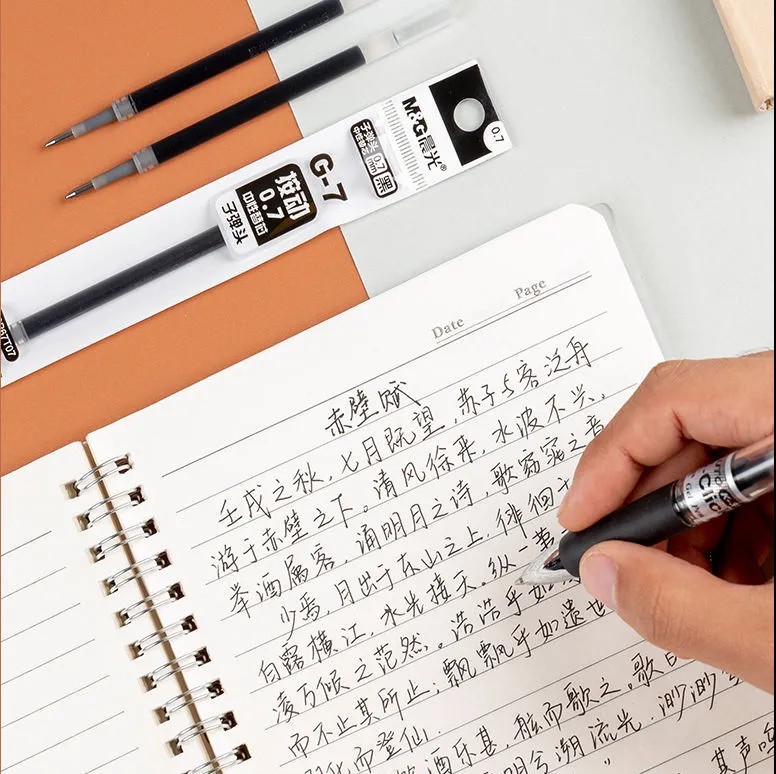 M&G晨光®
0.7
子弹头
中性替芯
0.7
mm
黑
G-7
按动
0.7
中性替芯
子弹头
Date
Page
赤壁赋
壬戌之秋,七月既望,苏子与客泛舟
游于赤壁之下。清风徐来,水波不兴。
举酒属客,诵明月之诗,歌窈窕之章
少焉,月出于东山之上,徘徊于
白露横江,水光接天。纵一苇
凌万顷之茫然。浩浩乎如
而不止其所止;飘飘乎如遗世
化而登仙.
饮酒乐甚,舷而歌之。歌曰
明兮溯流光.渺渺
其声呜